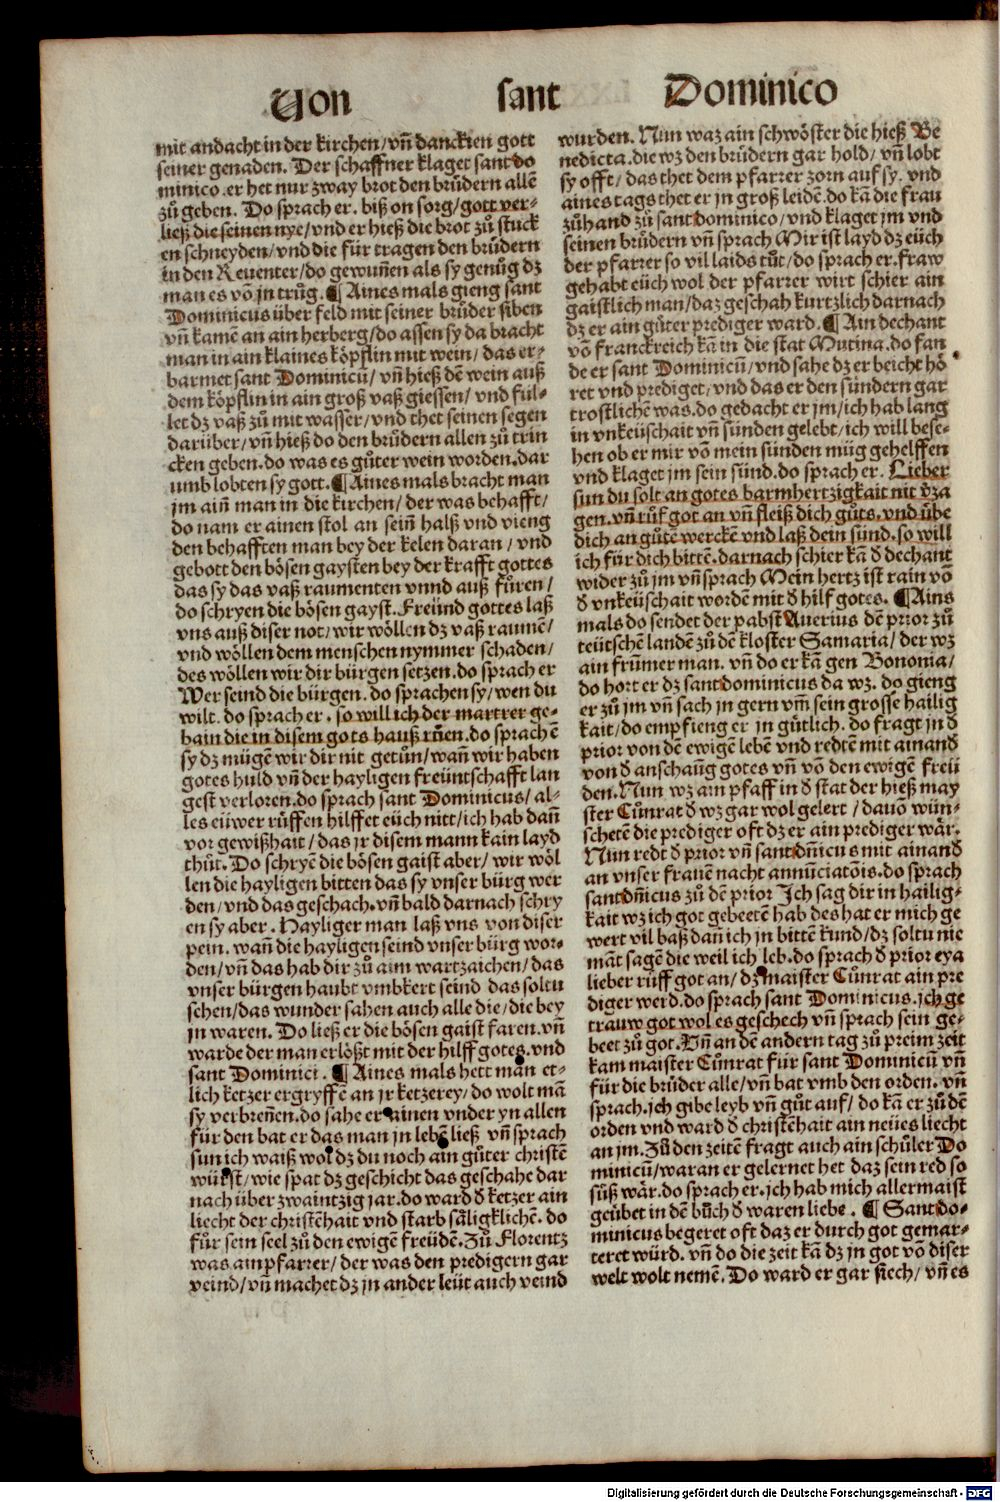 Von sant Dominico
mit andacht in der kirchen/vñ danckten gott
seiner genaden. Der schaffner klaget sant do
minico.er het nur zway brot den brůdern allē
zů geben. Do sprach er. biß on sorg/gott ver-
ließ die seinen nye/vnd er hieß die brot zů stuck
en schneyden/vnd die für tragen den brůdern
in den Reuenter/do gewuñen als sy genůg dz
man es vō jn trůg. ¶ Aines mals gieng sant
Dominicus über feld mit seiner brůder siben
vñ kamē an ain herberg/do assen sy da bracht
man in ain klaines köpflin mit wein/das er-
barmet sant Dominicū/vñ hieß dē wein auß
dem köpflin in ain groß vaß giessen/vnd ful-
let dz vaß zů mit wasser/vnd thet seinen segen
darüber/vñ hieß do den brůdern allen zů trin
cken geben.do was es gůter wein worden.dar
umb lobten sy gott.¶ Aines mals bracht man
jm aiñ man in die kirchen/der was behafft/
do nam er ainen stol an seiñ halß vnd vieng
den behafften man bey der kelen daran/vnd
gebott den bösen gaysten bey der krafft gottes
das sy das vaß raumenten vnnd auß fůren/
do schryen die bösen gayst.Freünd gottes laß
vns auß diser not/wir wöllen dz vaß raumē/
vnd wöllen dem menschen nymmer schaden/
des wöllen wir dir bürgen setzen.do sprach er
Wer seind die bürgen.do sprachen sy/wen du
wilt. do sprach er. so will ich der martrer ge-
bain die in disem gots hauß růen.do sprachē
sy dz mügē wir dir nit getůn/wañ wir haben
gotes huld vñ der hayligen freüntschafft lan
gest verloren.do sprach sant Dominicus/al-
les eüwer růffen hilffet eüch nitt/ich hab dañ
vor gewißhait/das jr disem mann kain layd
thůt. Do schryē die bösen gaist aber/wir wöl
len die hayligen bitten das sy vnser bürg wer
den/vnd das geschach.vñ bald darnach schry
en sy aber. Hayliger man laß vns von diser
pein. wañ die hayligen seind vnser bürg wor-
den/vñ das hab dir zů aim wartzaichen/das
vnser bürgen haubt vmbkert seind das soltu
schen/das wunder sahen auch alle die/die bey
jn waren. Do ließ er die bösen gaist faren.vñ
warde der man erlößt mit der hilff gotes.vnd
sant Dominici. ¶ Aines mals hett man et-
lich ketzer ergryffē an jr ketzerey/do wolt mā
sy verbreñen.do sahe er ainen vnder yn allen
für den bat er das man jn lebē ließ vñ sprach
sun ich waiß wol dz du noch ain gůter christē
würst/wie spat dz geschicht das geschahe dar
nach über zwaintzig jar.do ward d ketzer ain
liecht der christēhait vnd starb säligklichē.do
fůr sein seel zů den ewigē freüdē.Zů Florentz
was ain pfarrer/der was den predigern gar
veind/vñ machet dz jn ander leüt auch veind
wurden. Nun waz ain schwöster die hieß Be
nedicta.die wz den brüdern gar hold/vñ lobt
sy offt/das thet dem pfarrer zorn auf sy. vnd
aines tags thet er jn groß leidē.do kā die frau
zůhand zů sant dominico/vnd klaget jm vnd
seinen brüdern vñ sprach Mir ist layd dz eüch
der pfarrer so vil laids tůt/do sprach er.fraw
gehabt eüch wol der pfarrer wirt schier ain
gaistlich man/daz geschah kurtzlich darnach
dz er ain gůter prediger ward.¶ Ain dechant
vō franckreich kā in die stat Mutina.do fan
de er sant Dominicū/vnd sahe dz er beicht hö
ret vnd prediget/vnd das er den sündern gar
trostlichē was.do gedacht er jm/ich hab lang
in vnkeüschait vñ sünden gelebt/ich will bese-
hen ob er mir vō mein sünden müg gehelffen
vnd klaget jm sein sünd.do sprach er. Lieber
sun du solt an gotes barmhertzigkait nit vza
gen.vñ růf got an vñ fleiß dich gůts.vnd übe
dich an gůtē werckē vnd laß dein sünd.so will
ich für dich bittē.darnach schier kā d dechant
wider zů jm vñ sprach Mein hertz ist rain vō
d vnkeüschait wordē mit d hilf gotes. ¶ Ains
mals do sendet der pabst Auerius dē prior zů
teütschē landē zů dē kloster Samaria/der wz
ain frůmer man. vñ do er kā gen Bononia/
do hort er dz sant dominicus da wz. do gieng
er zů jm vñ sach jn gern vm̄ sein grosse hailig
kait/do empfieng er jn gůtlich. do fragt jn d
prior von dē ewigē lebē vnd redtē mit ainand
von d anschaūg gotes vñ vō den ewigē freü
den.Nun wz ain pfaff in d stat der hieß may
ster Cůnrat d wz gar wol gelert/dauō wün-
schetē die prediger oft dz er ain prediger wär.
Nun redt d prior vñ sant dñicus mit ainand
an vnser frauē nacht annūciatōis.do sprach
sant dñicus zů dē prior Ich sag dir in hailig-
kait wz ich got gebeetē hab des hat er mich ge
wert vil baß dañ ich jn bittē kund/dz soltu nie
māt sagē die weil ich leb.do sprach d prior eya
lieber růff got an/dz maister Cůnrat ain pre
diger werd.do sprach sant Dominicus.jch ge
trauw got wol es geschech vñ sprach sein ge-
beet zů got.Vñ an dē andern tag zů preim zeit
kam maister Cůnrat für sant Dominicū vñ
für die brüder alle/vñ bat vmb den orden.vñ
sprach.jch gibe leyb vñ gůt auf/do kā er zů dē
orden vnd ward d christēhait ain neües liecht
an jm.Zů den zeitē fragt auch ain schůler Do
minicū/waran er gelernet het daz sein red so
süß wär.do sprach er.jch hab mich allermaist
geübet in dē bůch d waren liebe. ¶ Sant do-
minicus begeret oft daz er durch got gemar-
teret würd. vñ do die zeit kā dz jn got vō diser
welt wolt nemē. Do ward er gar siech/vñ es
Digitalisierung gefördert durch die Deutsche Forschungsgemeinschaft - DFG